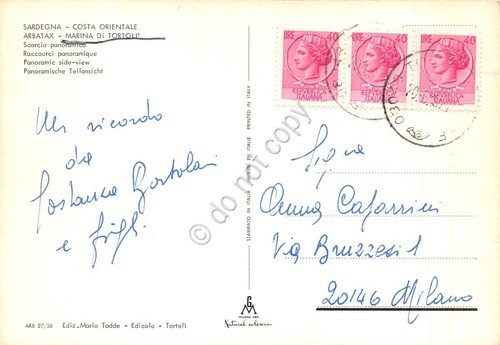 SARDEGNA - COSTA ORIENTALE
ARBATAX - MARINA DI TORTOLI'
Scorcio panoramico
Raccourci panoramique
Panoramic side-view
Panoramische Teilansicht
Un ricordo
da
Costanza Bortolani
e figli
ARB 27/56 Ediz. Mario Tadde - Edicola - Tortolì
PRINTED IN ITALY
STAMPATO IN ITALIA
do not copy
MILANO
Natural colours
LIRE 40
LIRE 40
LIRE 40
REPUBBLICA ITALIANA
REPUBBLICA ITALIANA
REPUBBLICA ITALIANA
Sig.na
Anna Cafarrini
Via Bruzzesi 1
20146 Milano